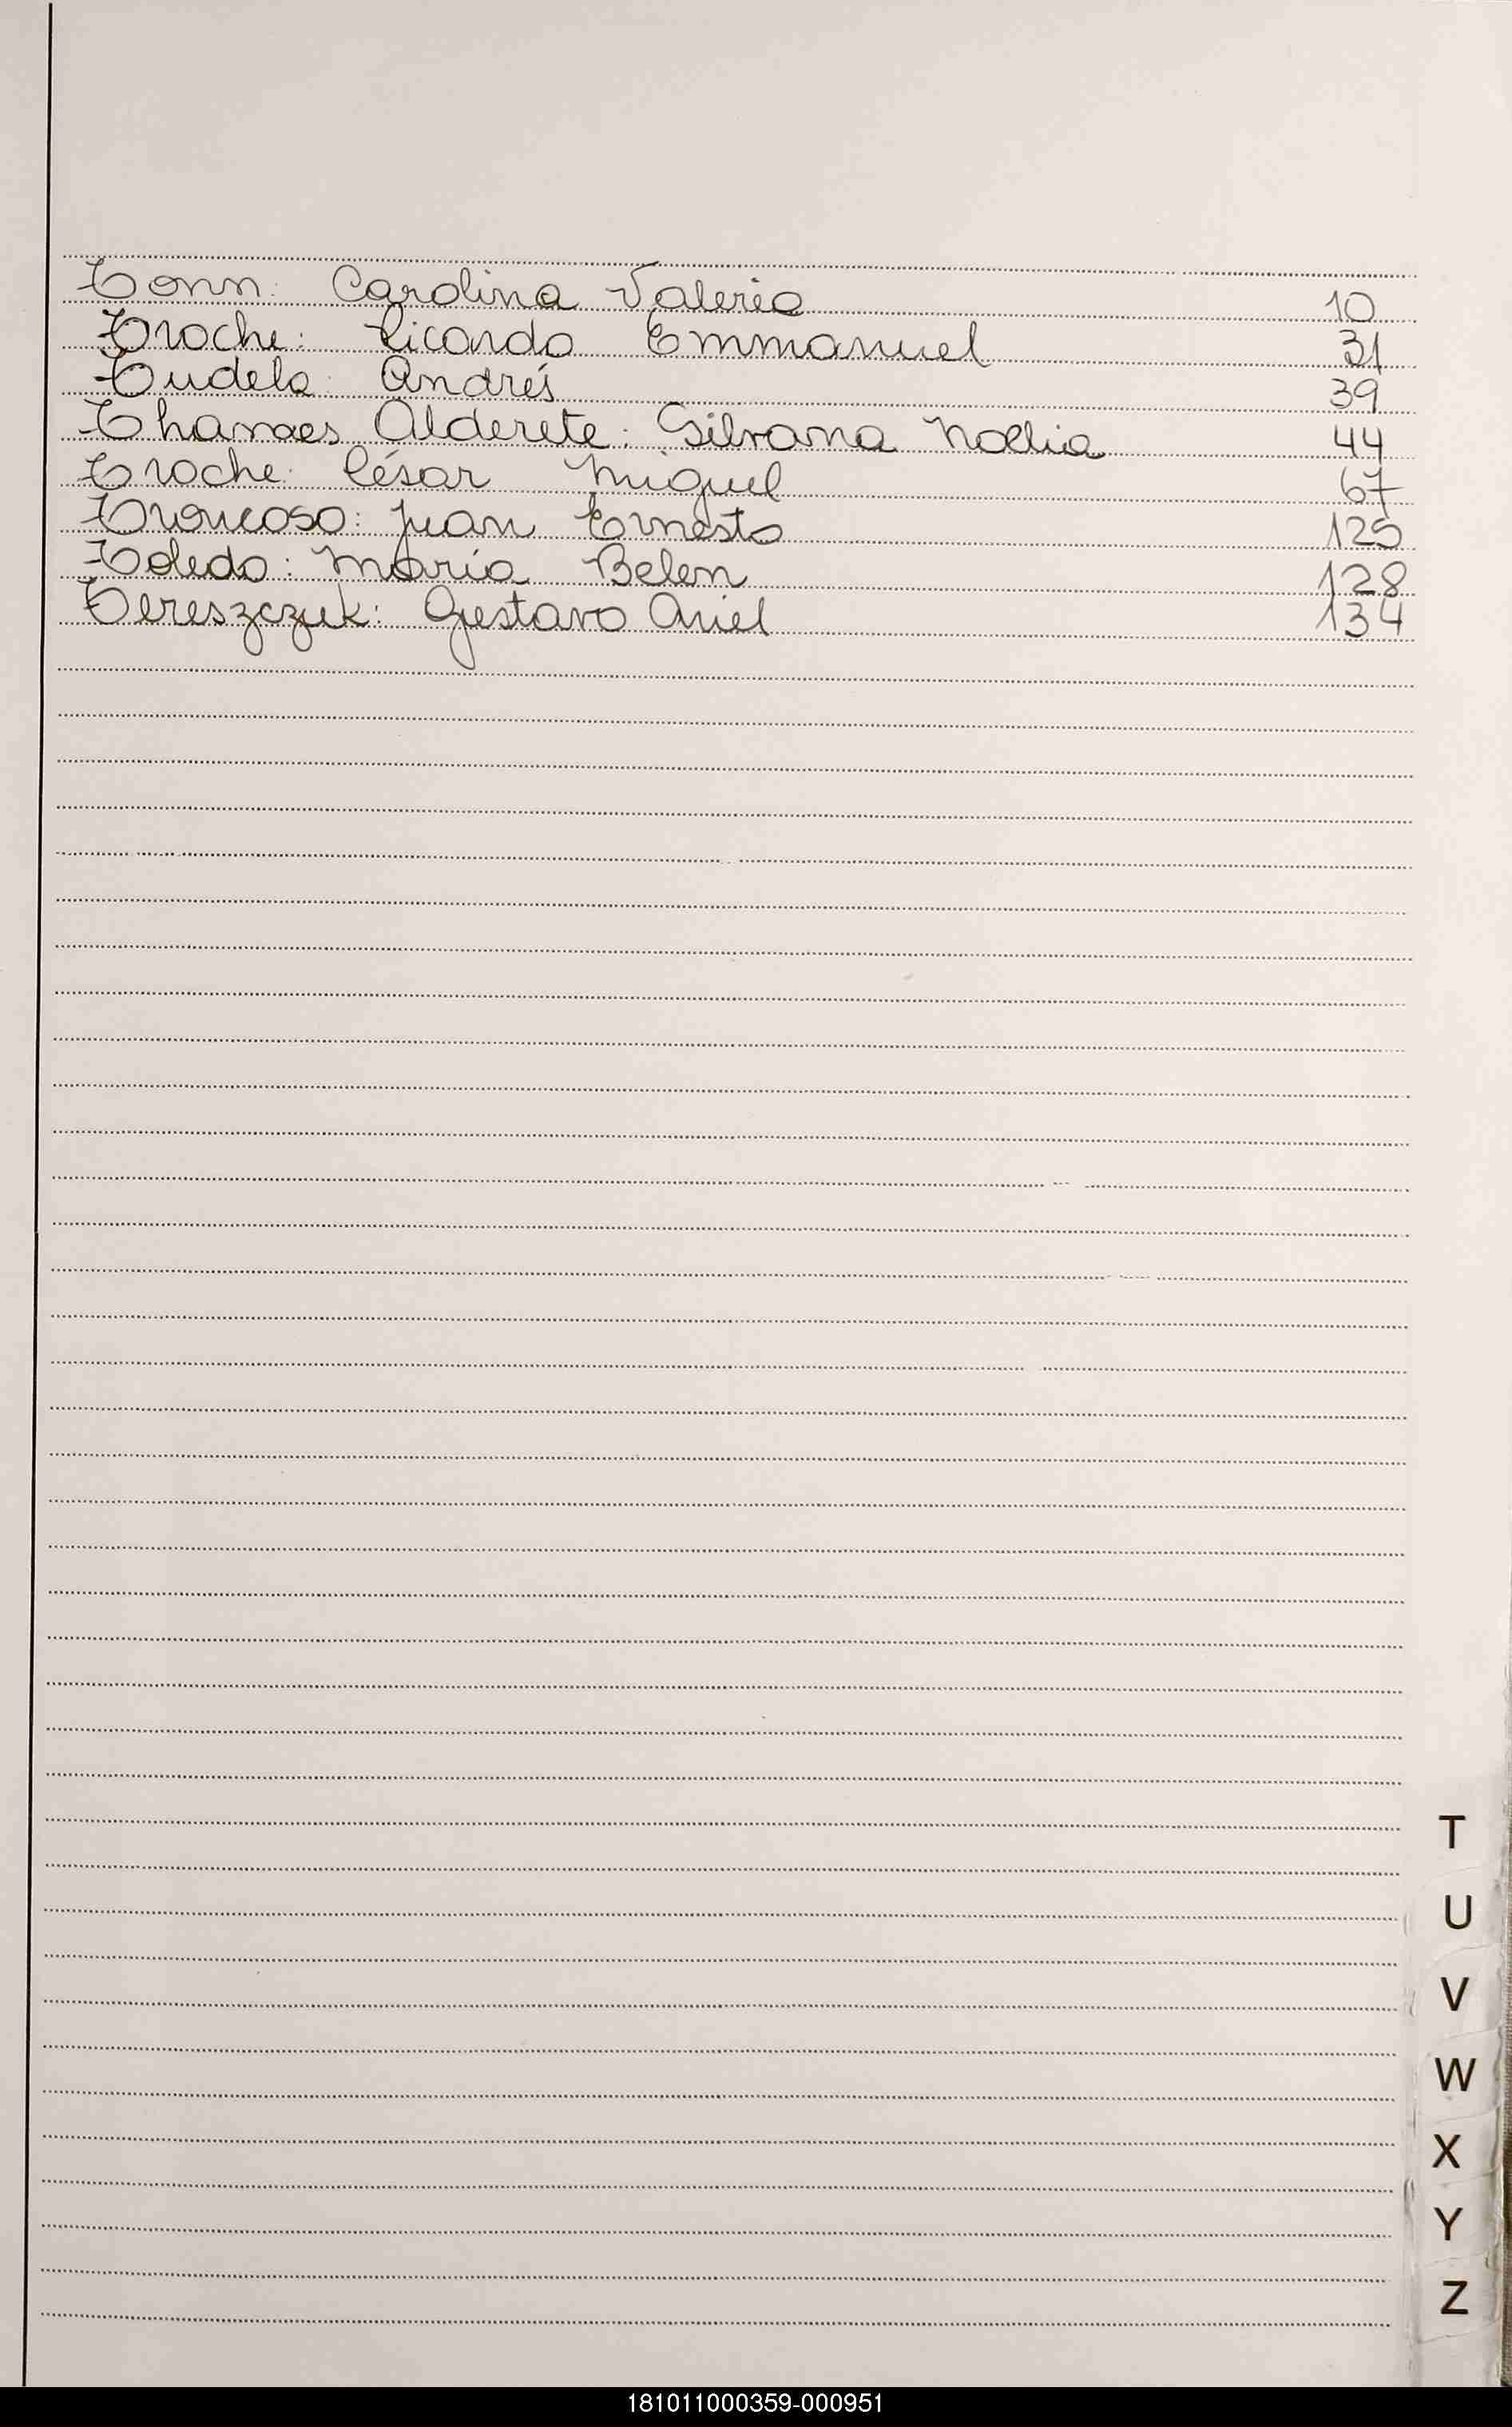 Tonn: Carolina Valeria 10
Troche: Ricardo Emmanuel 31
Tudela: Andrés 39
Thamaes Alderete: Silvana Noelia 44
Troche: César Miguel 67
Troncoso: Juan Ernesto 125
Toledo: María Belen 128
Tereszczuk: Gustavo Ariel 134
T
U
V
W
X
Y
Z
181011000359-000951